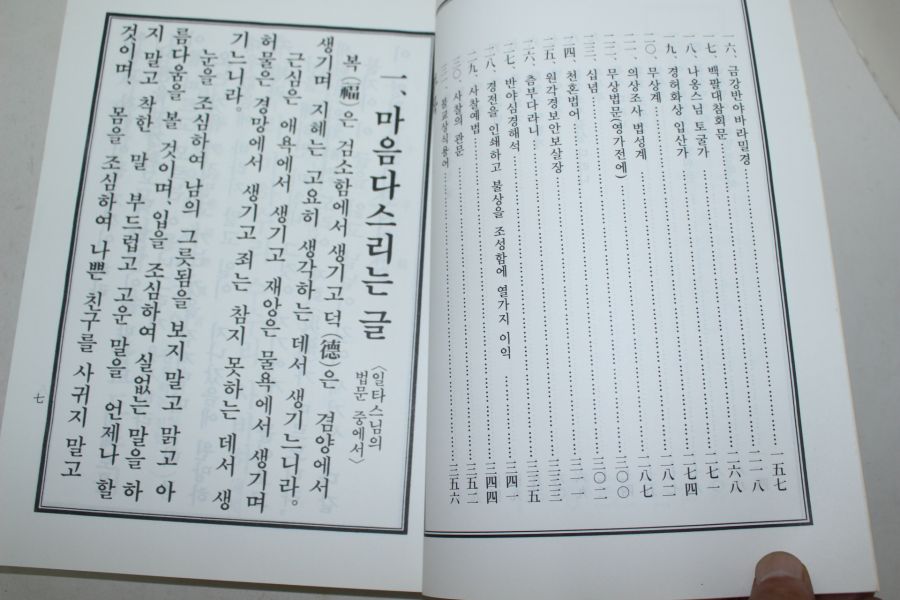 一六、금강반야바라밀경 …… 一五七
一七、백팔대참회문 …… 二一八
一八、나옹스님 토굴가 …… 一六八
一九、경허화상 입산가 …… 一七一
二○、무상계 …… 一七四
二一、의상조사 법성계 …… 一八二
二二、무상법문(영가전에) …… 一八七
二三、십념 …… 二○○
二四、천혼법어 …… 二○二
二五、원각경보안보살장 …… 二一一
二六、츰부다라니 …… 二三三
二七、반야심경해석 …… 二三五
二八、경전을 인쇄하고 불상을 조성함에 열가지 이익 …… 二四一
二九、사찰예법 …… 二四四
三○、사찰의 관문 …… 二五二
三一、불교상식용어 …… 二五六
一、마음다스리는 글
〈일타스님의
법문 중에서〉
복(福)은 검소함에서 생기고 덕(德)은 겸양에서
생기며 지혜는 고요히 생각하는 데서 생기느니라。
근심은 애욕에서 생기고 재앙은 물욕에서 생기며
허물은 경망에서 생기고 죄는 참지 못하는 데서 생
기느니라。
눈을 조심하여 남의 그릇됨을 보지 말고 맑고 아
름다움을 볼 것이며、입을 조심하여 실없는 말을 하
지 말고 착한 말 부드럽고 고운 말을 언제나 할
것이며、몸을 조심하여 나쁜 친구를 사귀지 말고
七